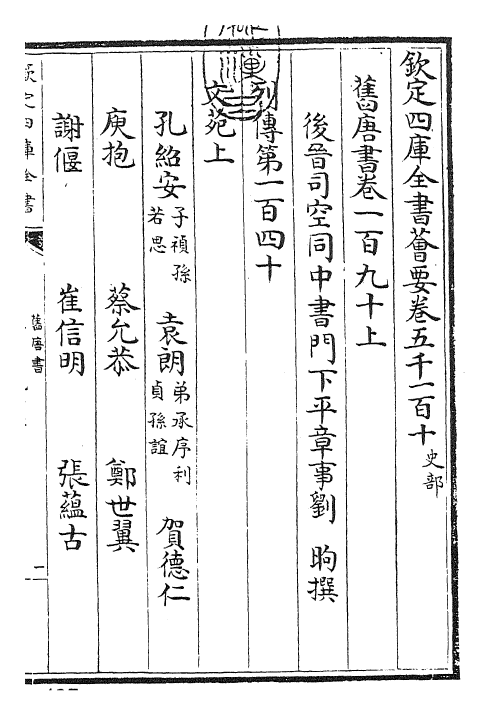 欽定四庫全書薈要卷五千一百十 史部
舊唐書卷一百九十上
後晉司空同中書門下平章事劉 昫撰
列傳第一百四十
文苑上
孔紹安 子禎孫若思 袁朗 弟承序利貞孫誼 賀德仁
庾抱 蔡允恭 鄭世翼
謝偃 崔信明 張蘊古
欽定四庫全書
舊唐書